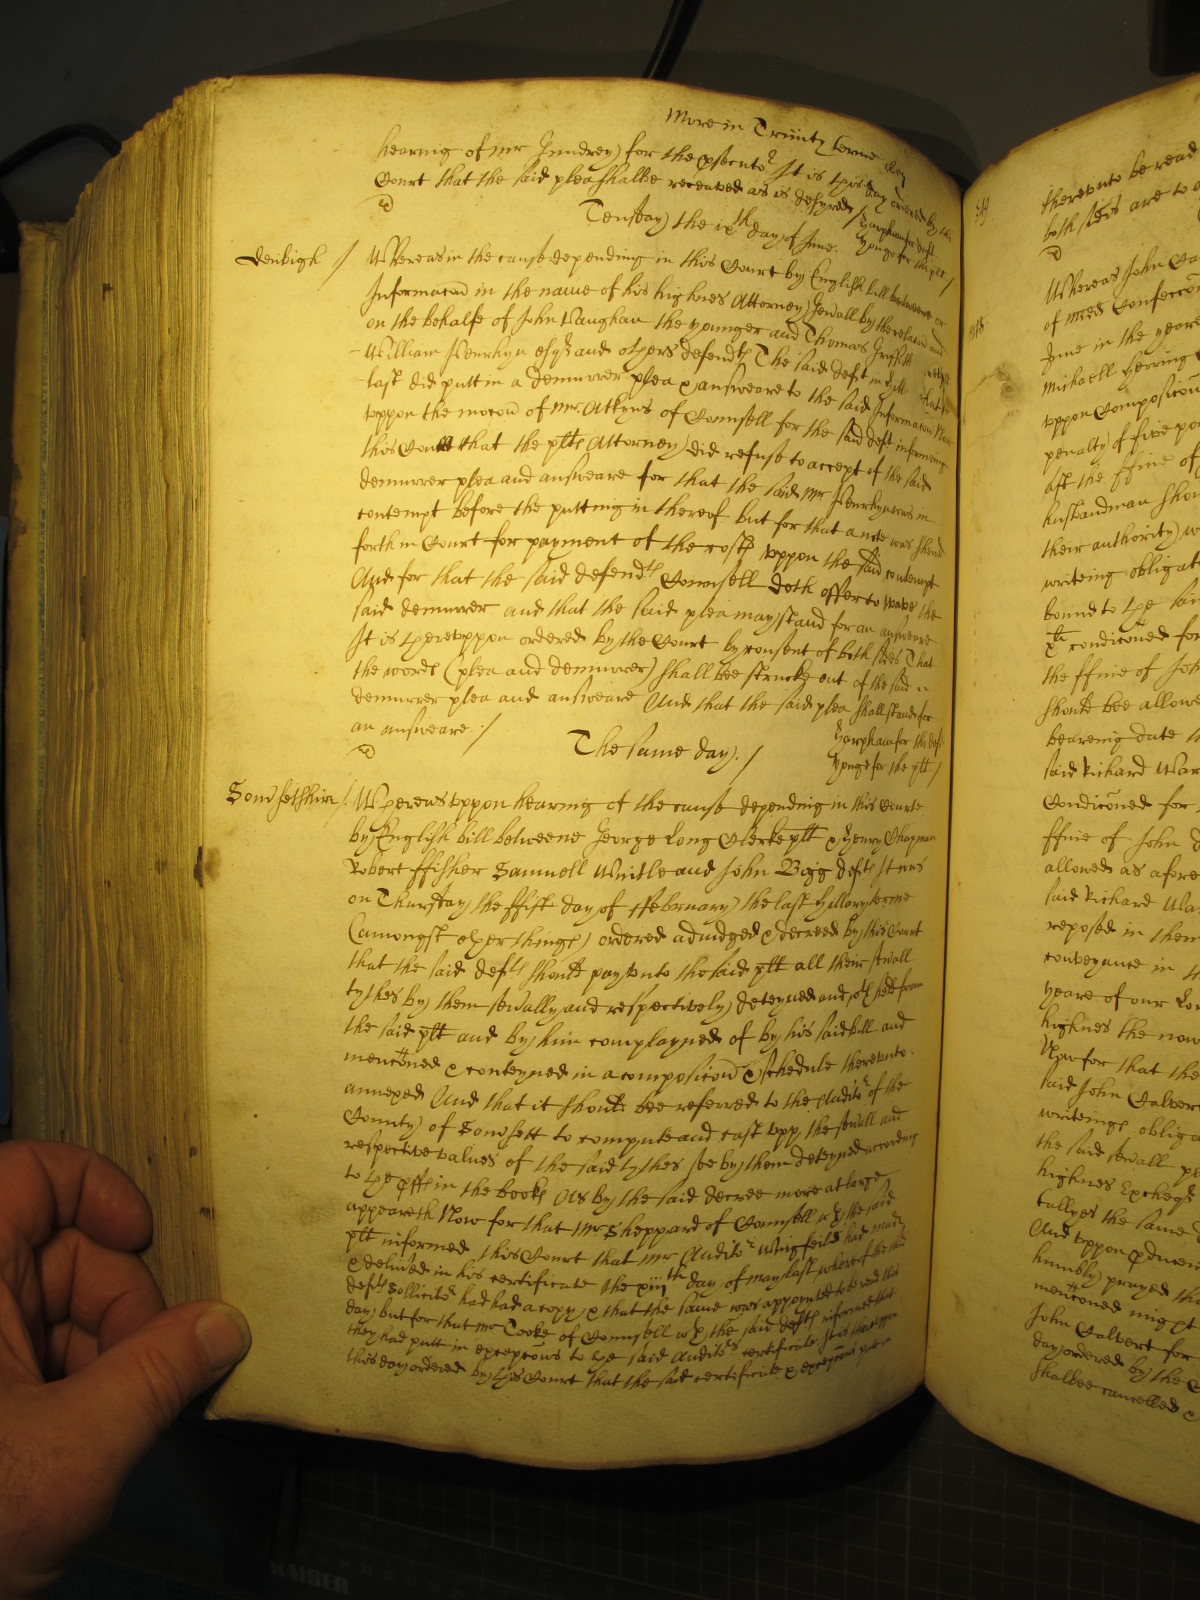 More in Trinity terme
hearing of mr Jumdrey for the exsecutor It is this day ordered by the
Court that the said plea shalbe receaved as is desyred / Harpham for deft
Yonge for the plt /
Tensday the ixth day of June.
Denbigh / Whereas in the cause depending in this Court by English bill betweene or
Informacon in the name of his highnes Attorney Genall by the relacon and
on the behalfe of John Vaughan the younger and Thomas Griffith
William Penrhyn esqr and others defendts The said deft in
last did putt in a demurrer plea & answeare to the said Informacon Now
uppon the mocon of mr Attkyns of Counsell for the said deft informing
this Court that the plts Attorney did refuse to accept of the said
demurrer plea and answeare for that the said mr Penrhyn was in
contempt before the putting in thereof but for that a note was shewed
forth in Court for payment of the costs uppon the said contempt
And for that the said defendts Counsell doth offer to wave the
said demurrer and that the said plea may stand for an answeare
It is thereuppon ordered by the Court by consent of both sides That
the words (plea and demurrer) shall bee strucke out of the said
demurrer plea and answeare And that the said plea shall stand for
an answeare / Harpham for the deft
Yonge for the plt /
The same day. /
Somsetshire / Whereas uppon hearing of the cause depending in this Courte
by English bill betweene George Long Clerke plt & Henry Chapman
Robert ffisher Samuell Whitle and John Bigg defts It was
on Thursday the ffirst day of ffebruary the last hillary terme
(amongst other things) ordered adiudged & decreed by this Court
that the said defts should pay unto the said plt all their sevall
tythes by them sevally and respectively deteyned and held from
the said plt and by him complayned of by his said bill and
mencioned & conteyned in a composicon & schedule thereunto
annexed And that it should bee referred to the Auditor of the
County of Somsett to compute and cast upp the sevall and
respective values of the said tythes soe by them deteyned according
to the in the booke As by the said decree more at large
appeareth Now for that Mr Sheppard of Counsell wth the said
plt informed this Court that mr Auditor Wingfeild had made
& delived in his certificate the xiijth day of may last whereof the
defts Sollicitor had had a copy & that the same was appointed to be read this
day but for that mr Cooke of Counsell wth the said defts informed that
they had putt in excepcons to the said Auditors certificate It is thereuppon
this day ordered by this Court that the said certificate & excepcons
thereunto be read
both sides are to a
Whereas John Ca
of
June in the yeare
Michaell Herring
uppon Composicon
penalty of five po
the ffine of
husbandman shou
their authority w
writeing obligat
bound to the sai
condiconed for
the ffine of Joh
should bee allowe
beareing date
said Richard War
Condiconed for
ffine of John
allowed as afore
said Richard Wa
reposed in them
conveyance in
yeare of our Lo
highnes the now
Now for that the
said John Calvert
writeings obliga
the said sevall
highnes Exchequ
tallyes the same
And uppon produceing
humbly prayed th
mencioned might
John Calvert for
day ordered by the C
shalbee cancelled &